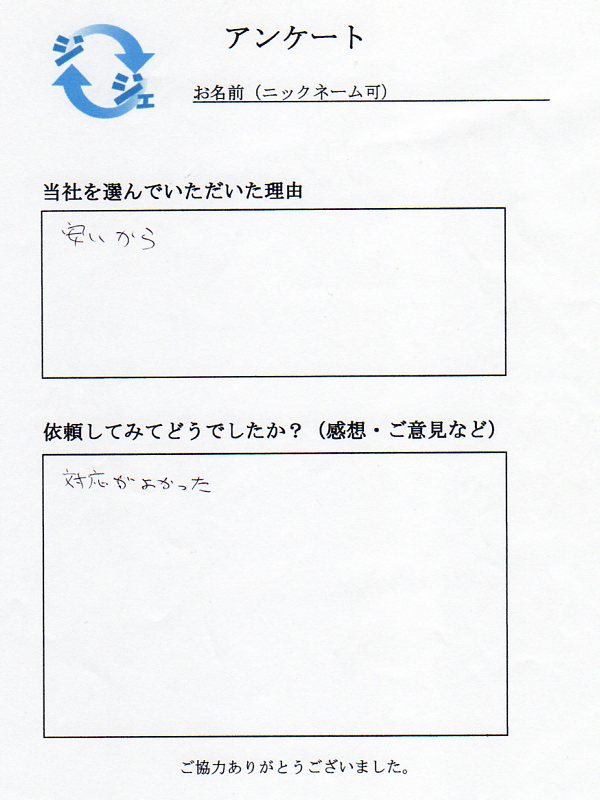 ジジェ
アンケート
お名前（ニックネーム可）
当社を選んでいただいた理由
安いから
依頼してみてどうでしたか？（感想・ご意見など）
対応がよかった
ご協力ありがとうございました。